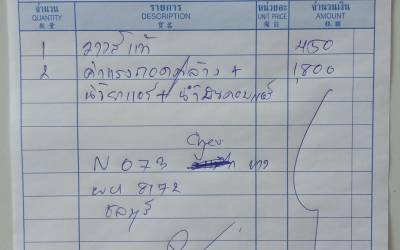 จำนวน รายการ หน่วยละ จำนวนเงิน
QUANTITY DESCRIPTION UNIT PRICE AMOUNT
1 วาวล์แท้ 450
2 ค่าแรงถอดตู้ล้าง + 1,800
น้ำยาแอร์ + น้ำมันคอมแอร์
Chev
N 073 ขาว
ผม 8172
ชลบุรี